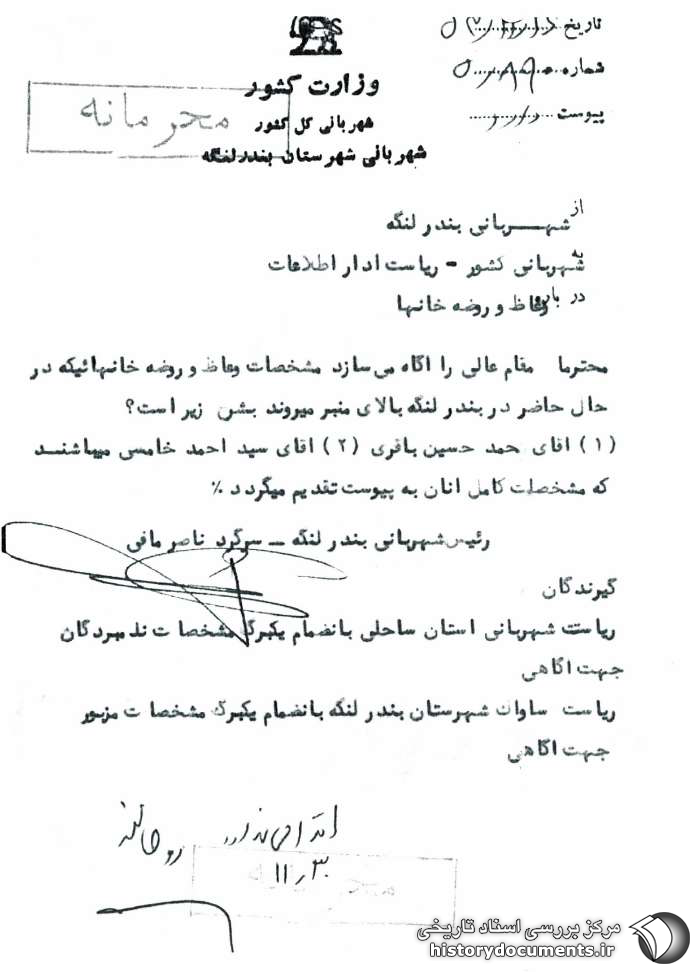 تاریخ
شماره
پیوست
وزارت کشور
شهربانی کل کشور
شهربانی شهرستان بندرلنگه
محرمانه
از شهربانی بندر لنگه
به شهربانی کشور - ریاست ادار اطلاعات
در باره وعاظ و روضه خانها
محترما مقام عالی را اگاه می سازد مشخصات وعاظ و روضه خانهائیکه در
حال حاضر در بندر لنگه بالای منبر میروند بشرن زیر است؟
(۱) اقای حمد حسین باقری (۲) اقای سید احمد خامسی میباشند
که مشخصات کامل انان به پیوست تقدیم میگردد ٪
رئیس شهربانی بندر لنگه - سرگرد ناصر مافی
گیرندگان
ریاست شهربانی استان ساحلی بانضمام یکبرگ مشخصات نامبردگان
جهت اگاهی
ریاست ساواک شهرستان بندر لنگه بانضمام یکبرگ مشخصات مزبور
جهت اگاهی
۱۱٫۳۰
محرمانه
مرکز بررسی اسناد تاریخی
historydocuments.ir